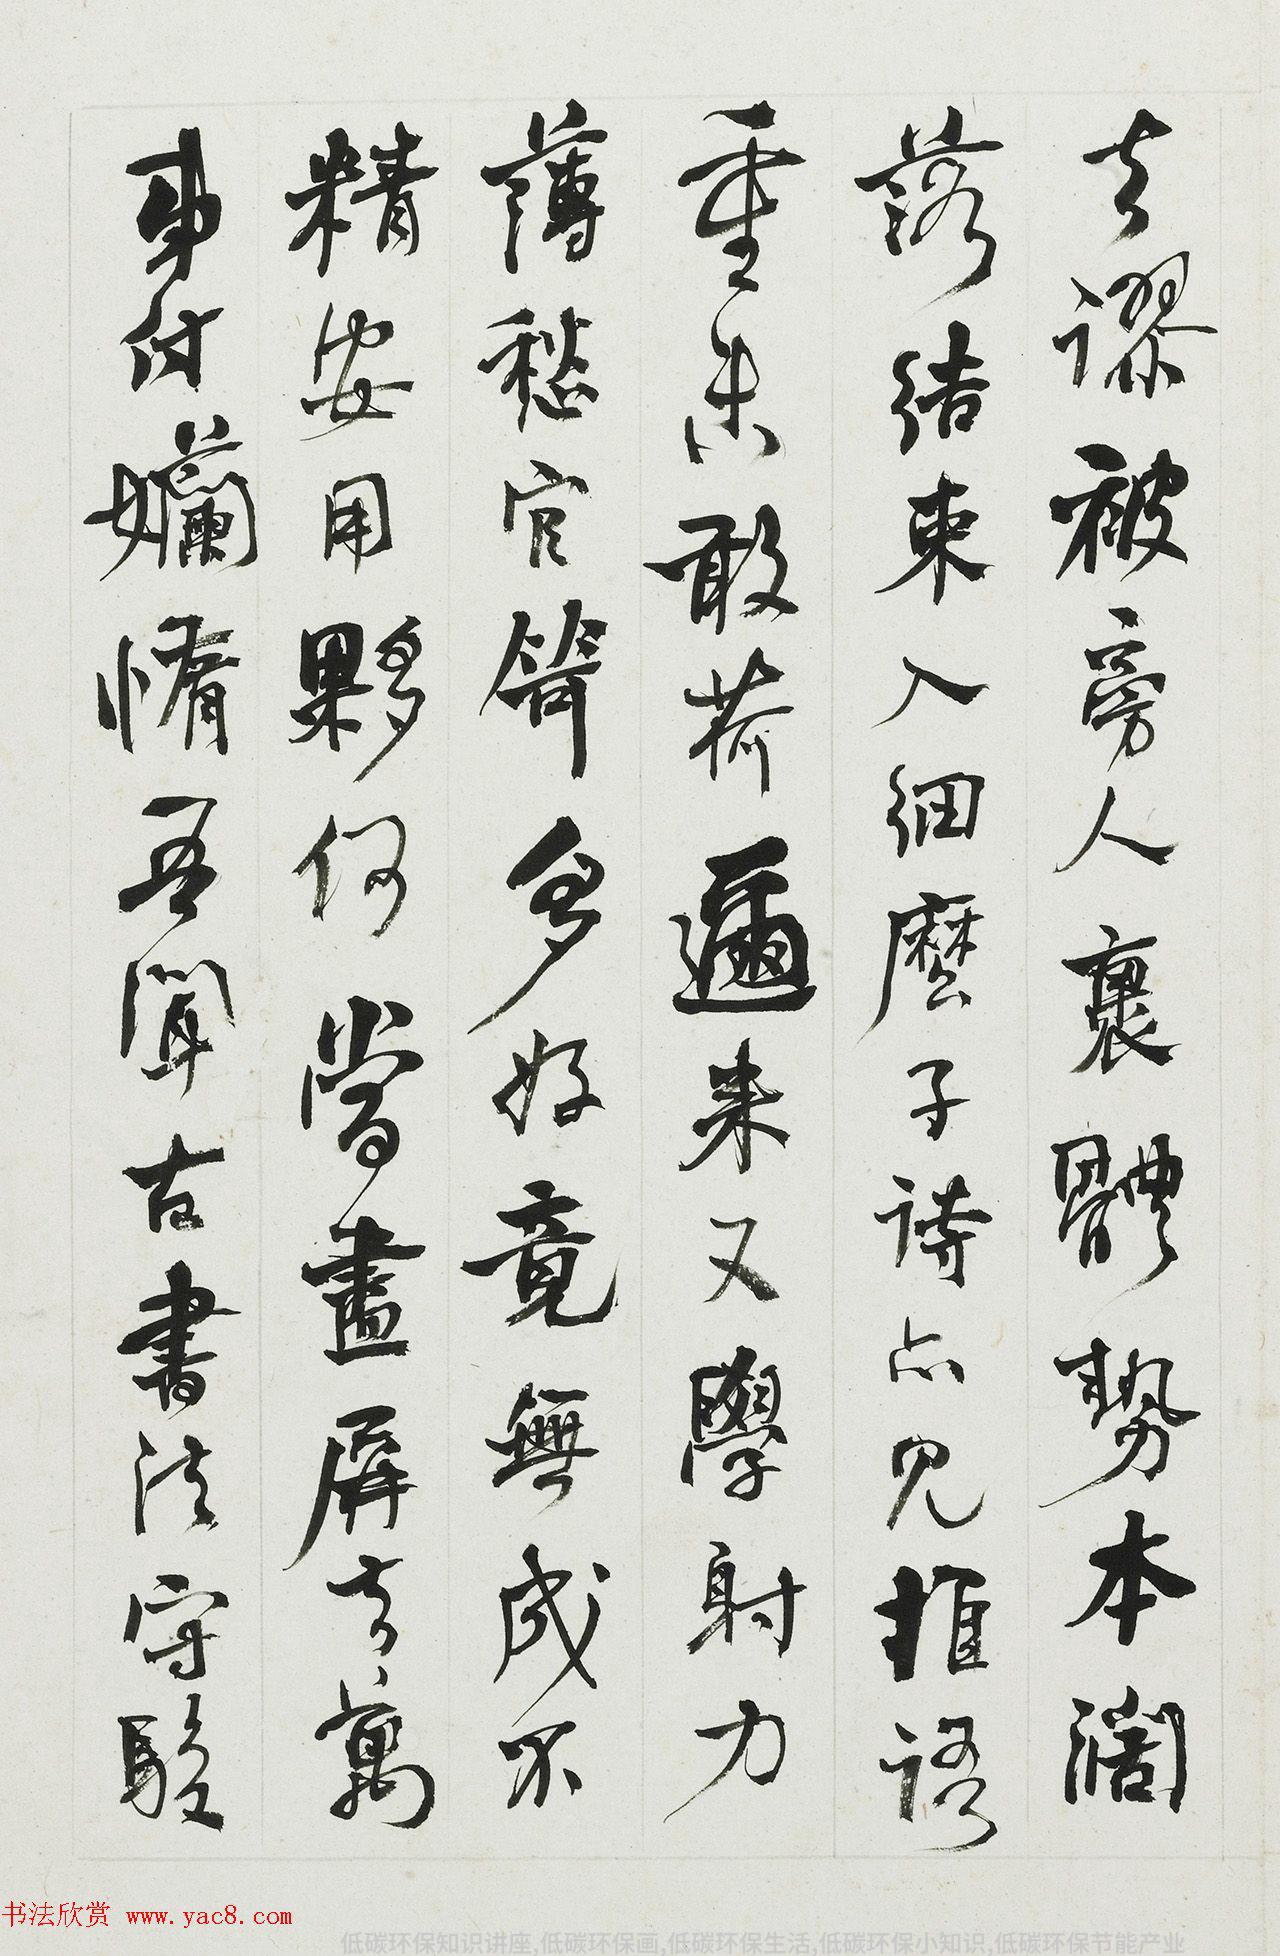 去謬被旁人裹體勢本闊
落結束入細麽子詩亦見推語
重未敢荷邇來又學射力
薄愁官笴多好竟無成不
精安用夥何當盡屏去萬
事付嬾惰吾聞古書法守駿
书法欣赏 www.yac8.com
低碳环保知识讲座,低碳环保画,低碳环保生活,低碳环保小知识,低碳环保节能产业